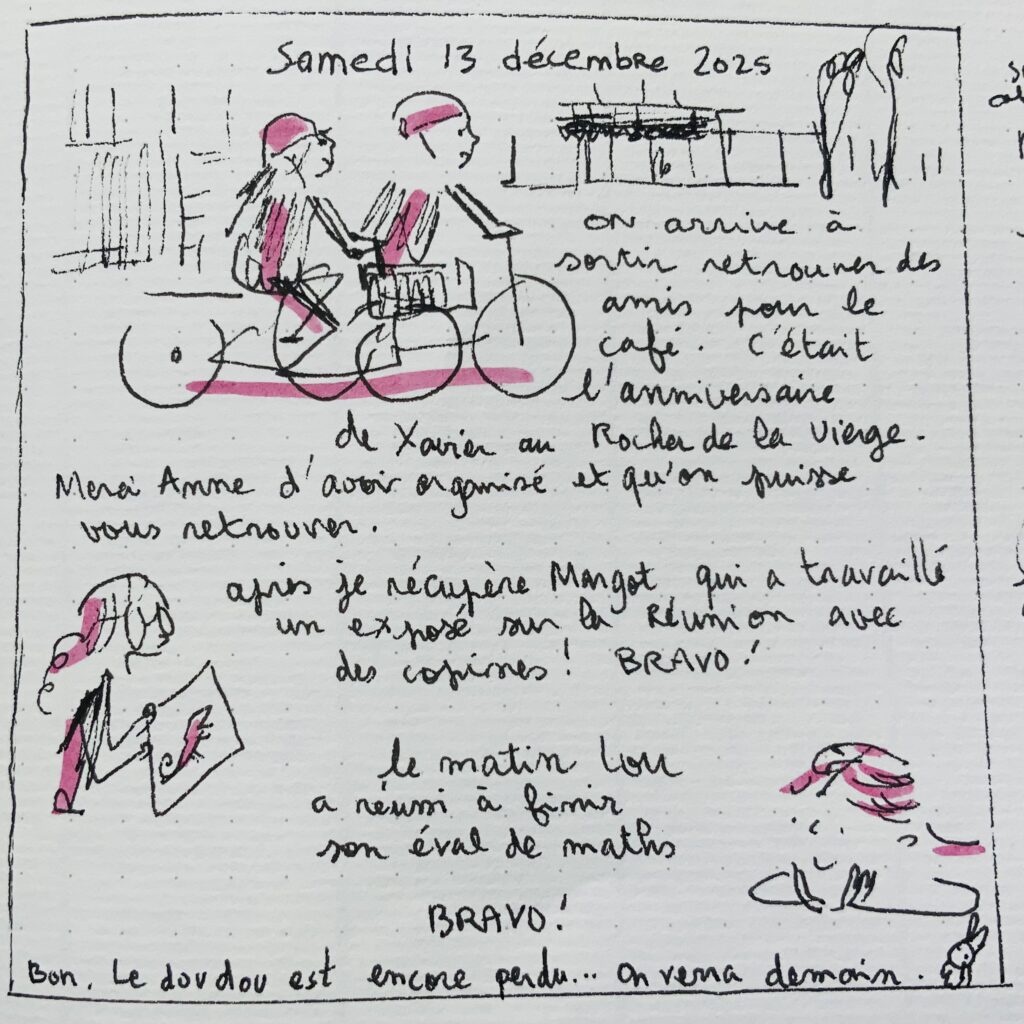 Samedi 13 décembre 2025
on arrive à
sortir retrouver des
amis pour le
café. C'était
l'anniversaire
de Xavier au Rocher de la Vierge.
Merci Anne d'avoir organisé et qu'on puisse
vous retrouver.
après je récupère Margot qui a travaillé
un exposé sur la Réunion avec
des copines! BRAVO!
le matin Lou
a réussi à finir
son éval de maths
BRAVO!
Bon. Le doudou est encore perdu... On verra demain.